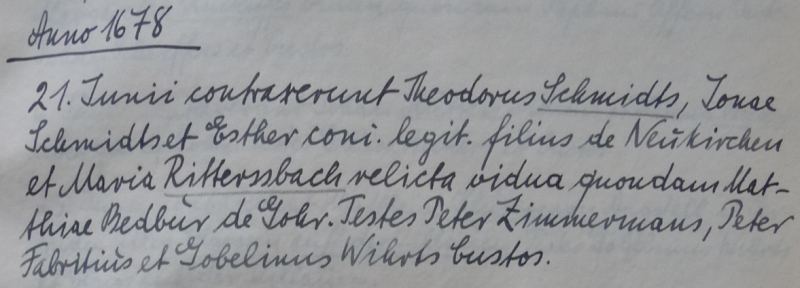 Anno 1678
21. Junii contraxerunt Theodorus Schmidts, Jonae
Schmidts et Esther coni. legit. filius de Neukirchen
et Maria Ritterssbach relicta vidua quondam Mat-
thiae Bedbùr de Gohr. Testes Peter Zimmermans, Peter
Fabritiùs et Gobelinus Wihrts Custos.